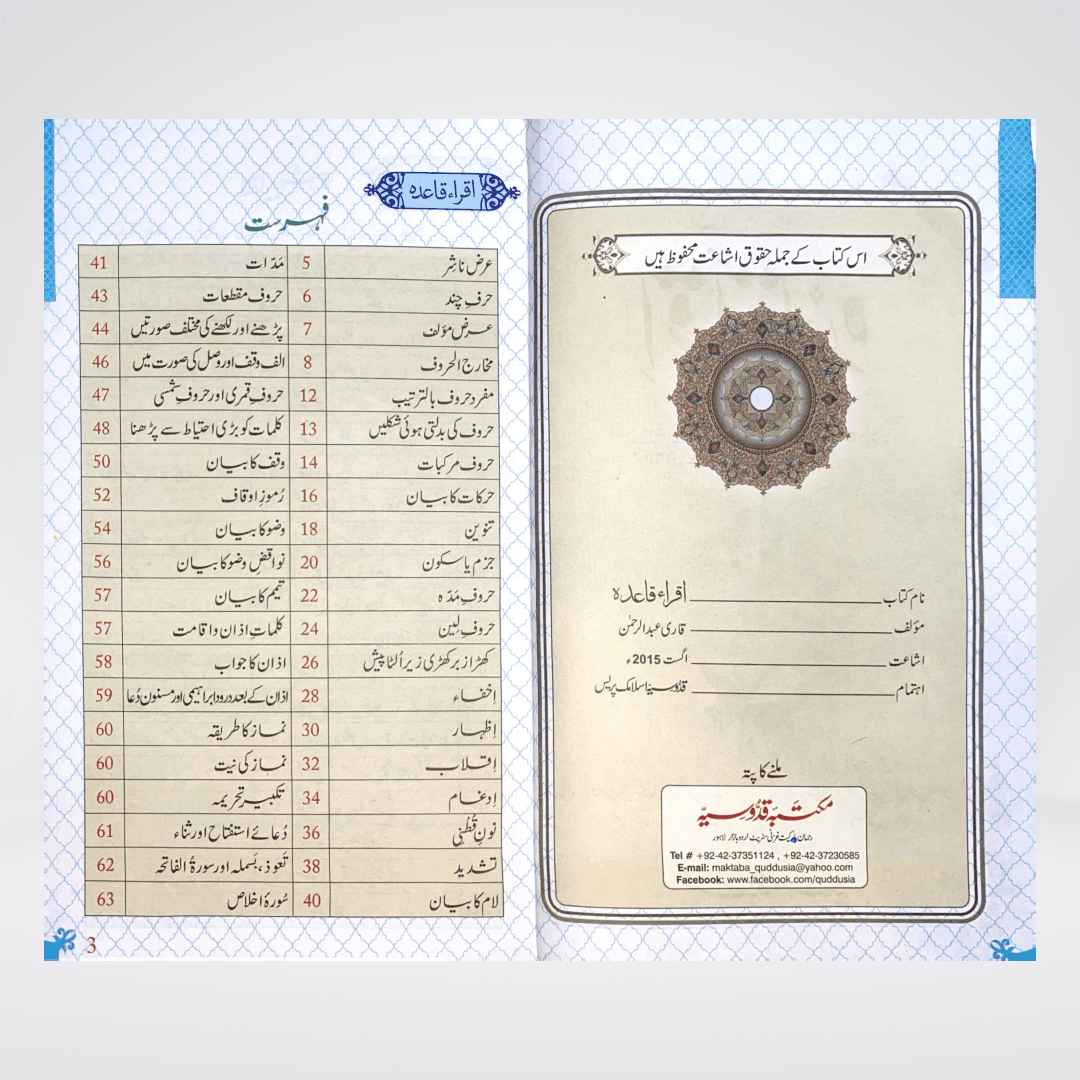 اس کتاب کے جملہ حقوق اشاعت محفوظ ہیں
نام کتاب اقراء قاعدہ
مؤلف قاری عبدالرحمٰن
اشاعت اگست 2015ء
اہتمام قدوسیہ اسلامک پریس
ملنے کا پتہ
مکتبہ قدوسیہ
رحمان مارکیٹ غزنی سٹریٹ اردو بازار لاہور
Tel # +92-42-37351124 , +92-42-37230585
E-mail: maktaba_quddusia@yahoo.com
Facebook: www.facebook.com/quddusia
اقراء قاعدہ
فہرست
عرض ناشر 5 مَدّات 41
حرفِ چند 6 حروف مقطعات 43
عرض مؤلف 7 پڑھنے اور لکھنے کی مختلف صورتیں 44
مخارج الحروف 8 الف وقف اور وصل کی صورت میں 46
مفرد حروف بالترتیب 12 حروفِ قمری اور حروفِ شمسی 47
حروف کی بدلتی ہوئی شکلیں 13 کلمات کو بڑی احتیاط سے پڑھنا 48
حروف مرکبات 14 وقف کا بیان 50
حرکات کا بیان 16 رُموزِ اوقاف 52
تنوین 18 وضو کا بیان 54
جزم یا سکون 20 نواقضِ وضو کا بیان 56
حروفِ مَدّہ 22 تیمم کا بیان 57
حروفِ لِین 24 کلماتِ اذان و اقامت 57
کھڑا زبر کھڑی زیر اُلٹا پیش 26 اذان کا جواب 58
اِخفاء 28 اذان کے بعد درود ابراہیمی اور مسنون دُعا 59
اِظہار 30 نماز کا طریقہ 60
اِقلاب 32 نماز کی نیت 60
اِدغام 34 تکبیر تحریمہ 60
نونِ قُطْنِی 36 دُعائے استفتاح اور ثناء 61
تشدید 38 تَعوذ، بَسملہ اور سورۃُ الفاتحہ 62
لام کا بیان 40 سُورۂ اخلاص 63
3